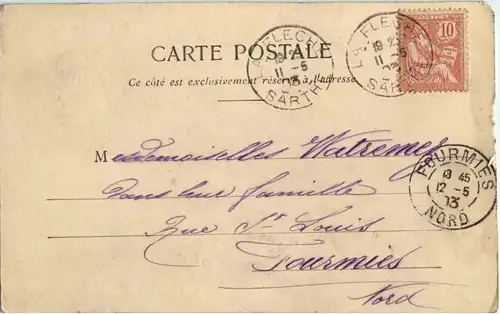 CARTE POSTALE
Ce côté est exclusivement réservé à l'adresse
LA FLECHE
11 -5
SARTHE
LA FLECHE
11 -5
SARTHE
POSTES
10
FOURMIES
12 -5
NORD
Mesdemoiselles Watremez
dans leur famille
Rue St Louis
Fourmies
Nord